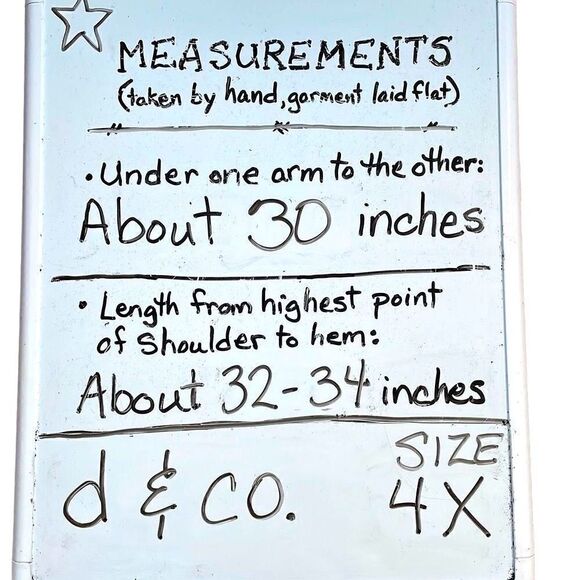 MEASUREMENTS
(taken by hand, garment laid flat)
• Under one arm to the other:
About 30 inches
• Length from highest point
of shoulder to hem:
About 32-34 inches
d & CO.
SIZE
4X